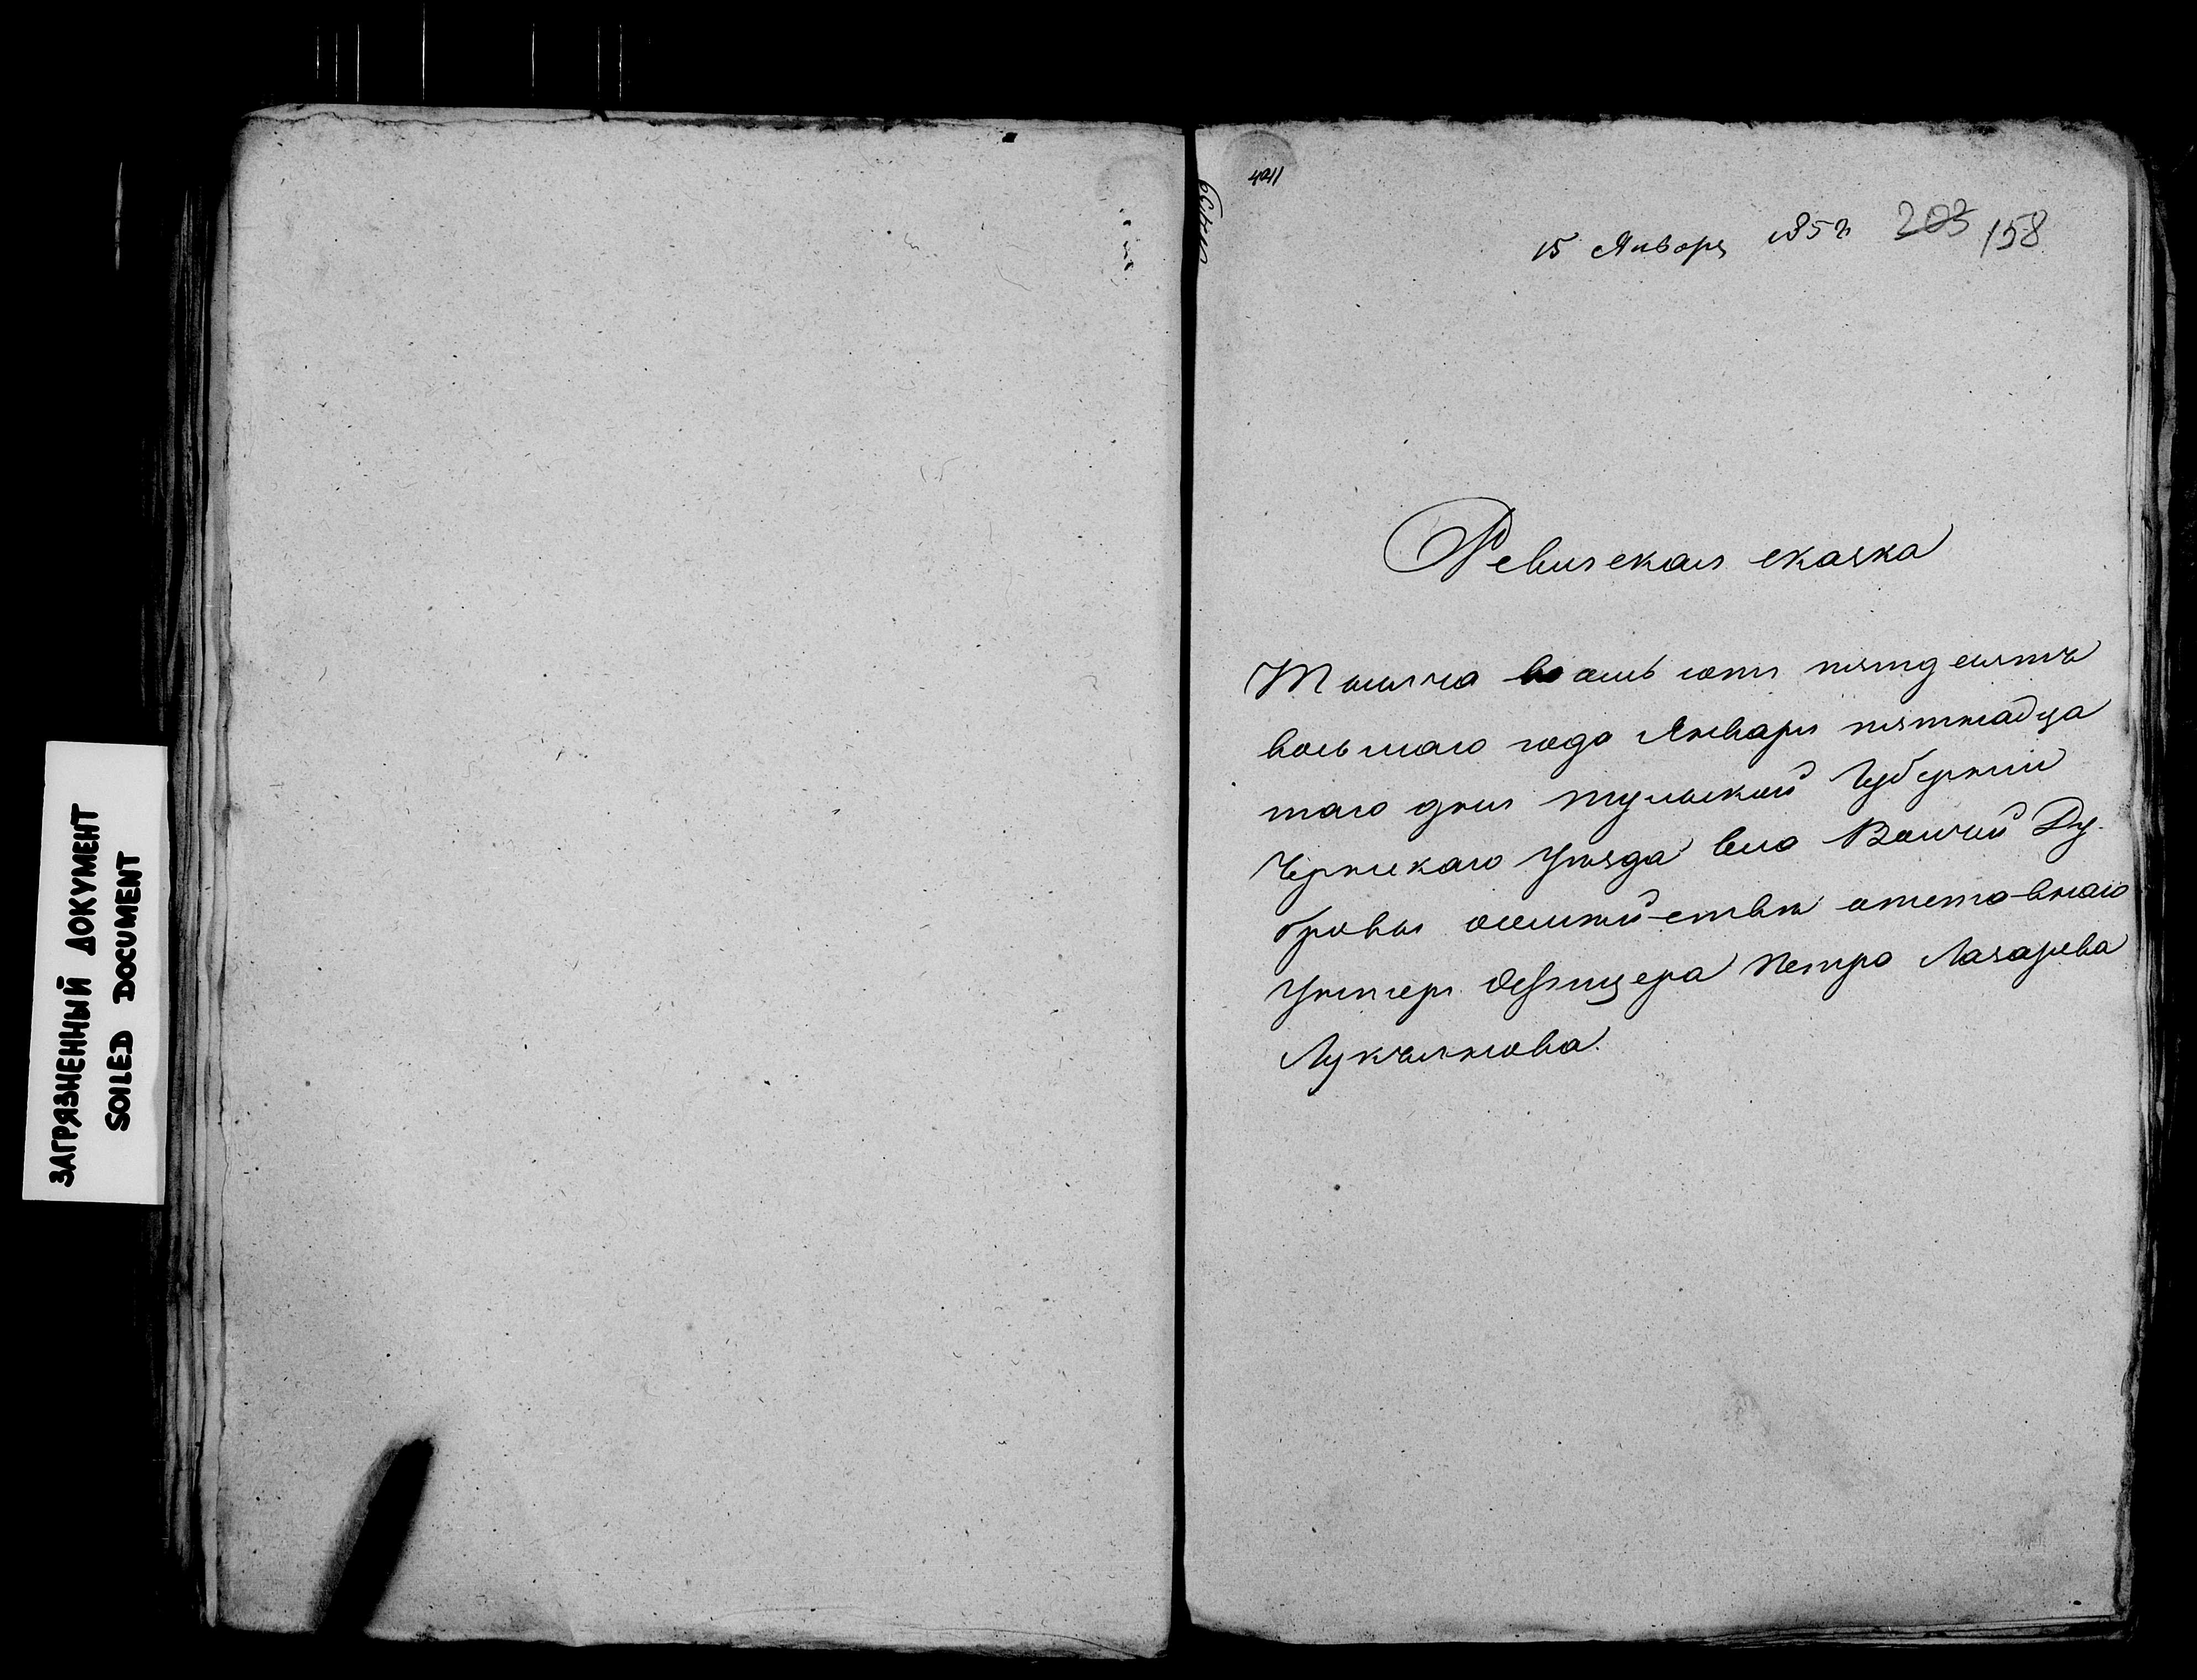 ЗАГРЯЗНЕННЫЙ ДОКУМЕНТ
SOILED DOCUMENT
15 Января 1858 203 158
Ревизская сказка
Тысяча восемь сотъ пятдесятъ
восьмаго года Января пятнадца
таго дня Тульской Губерніи
Чернскаго Уѣзда села Волчьей Ду-
бровы о семействѣ отставнаго
Унтеръ Офицера Петра Лазарева
Лукьянова.